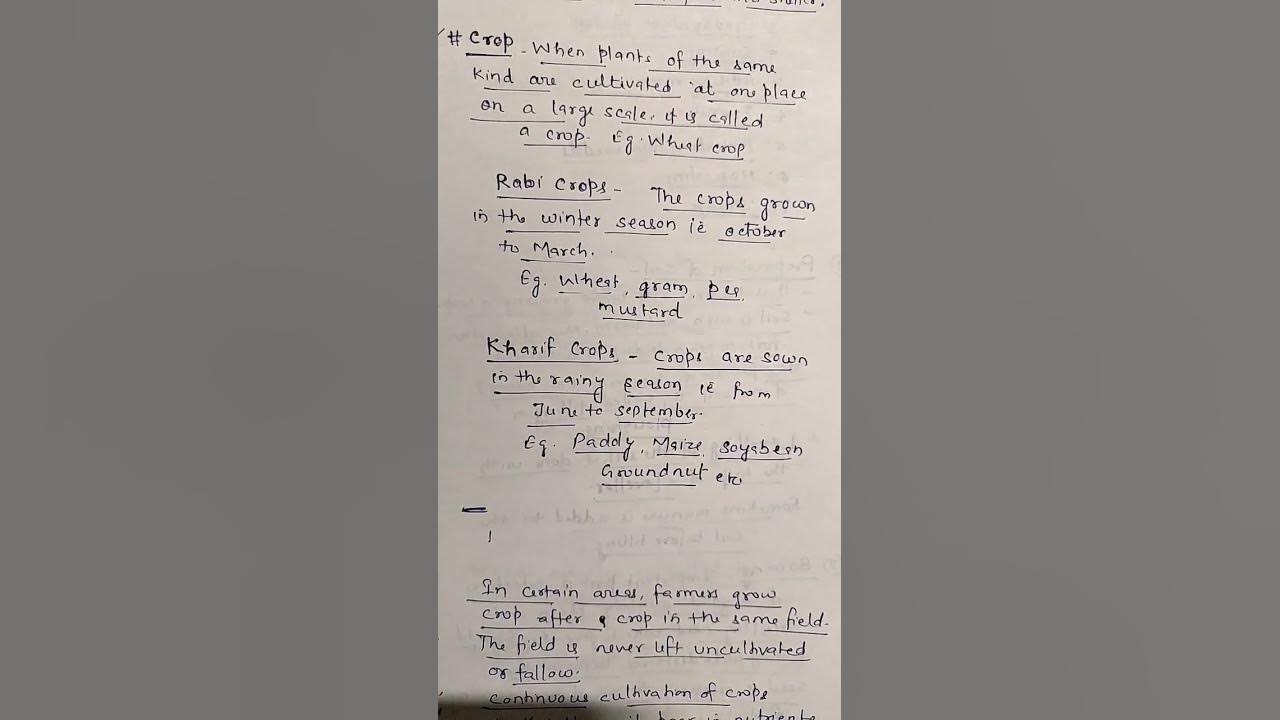 # Crop - When plants of the same
kind are cultivated at one place
on a large scale, it is called
a crop. Eg. Wheat crop
Rabi Crops - The crops grown
in the winter season ie october
to March.
Eg. Wheat, gram, pea,
mustard
Kharif Crops - crops are sown
in the rainy season ie from
June to september.
Eg. Paddy, Maize, Soyabean
Groundnut etc
In certain areas, farmers grow
crop after crop in the same field.
The field is never left uncultivated
or fallow.
Continuous cultivation of crops
nutrients